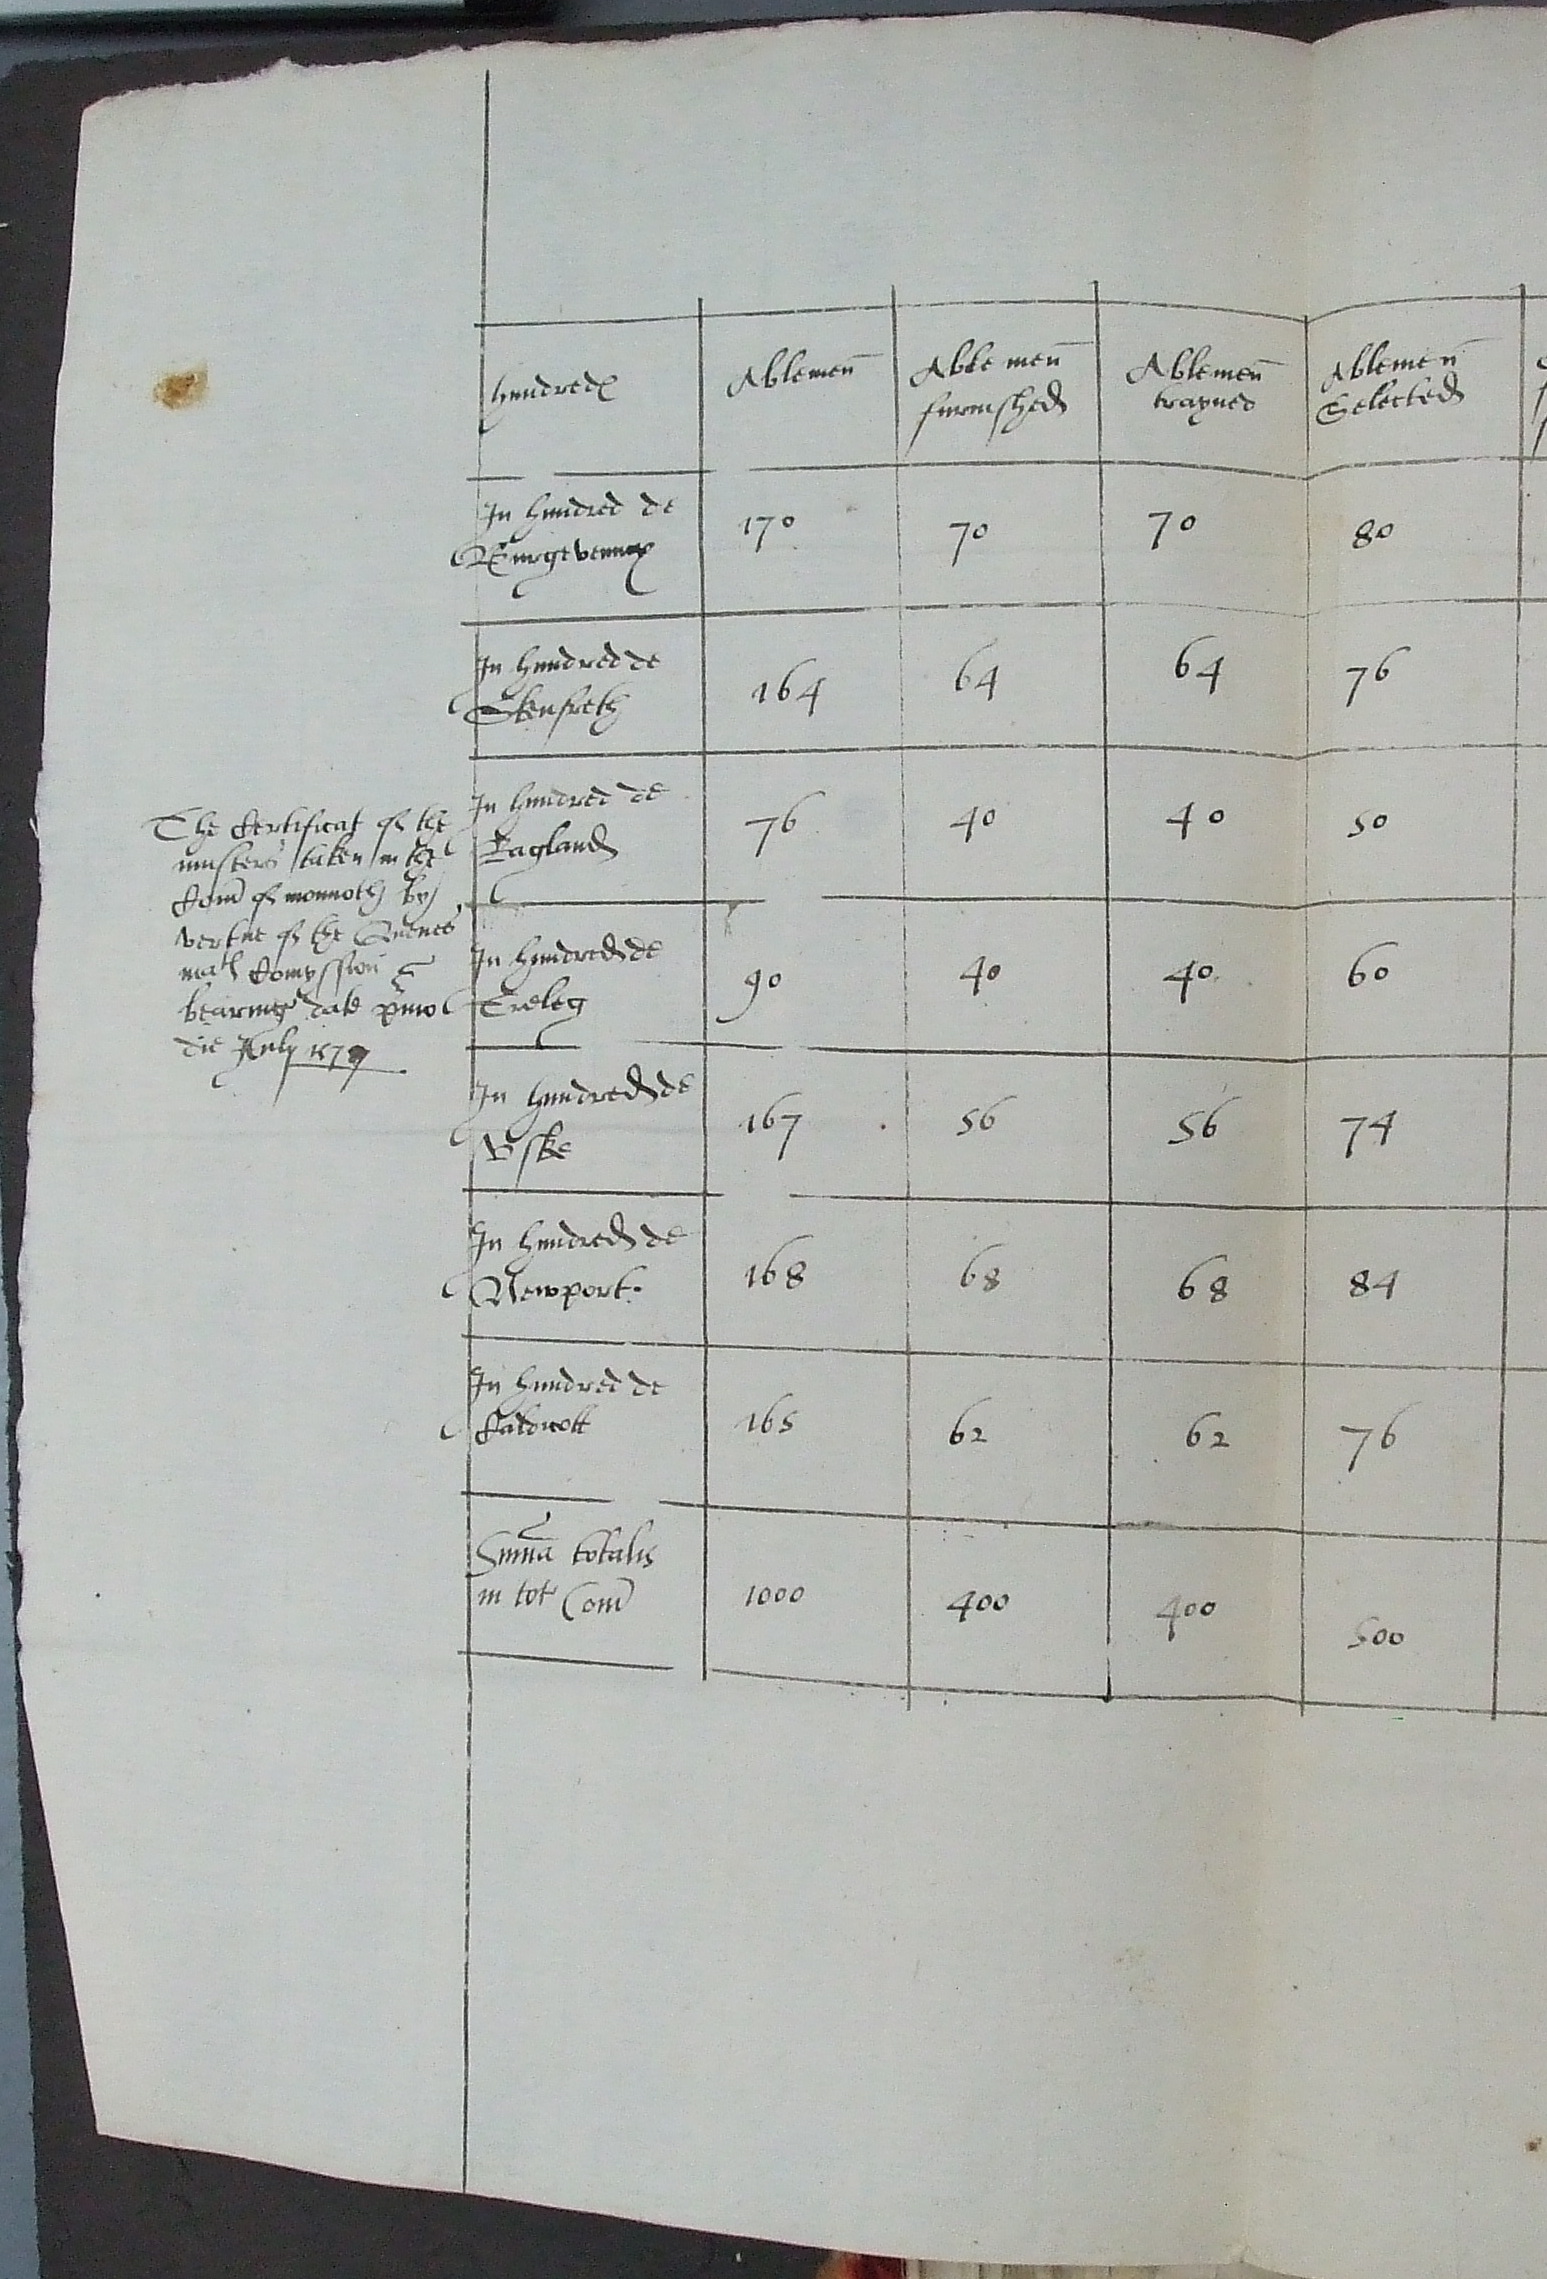 The Certificat of the
musters taken in the
Com of monmoth by
vertue of the Quenes
mats Comyssion
bearing date pmo
die July 1579
hundreds Ablemen Able men Ablemen Ablemen
furnisheds trayned Selected
In hundred de 170 70 70 80
Burgevenny
In hundred de 164 64 64 76
Skenfreth
In hundred de 76 40 40 50
Ragland
In hundred de 90 40 40 60
Treleg
In hundred de 167 56 56 74
Vske
In hundred de 168 68 68 84
Newport.
In hundred de 165 62 62 76
Caldicott
Suma totalis 1000 400 400 500
in tot Com